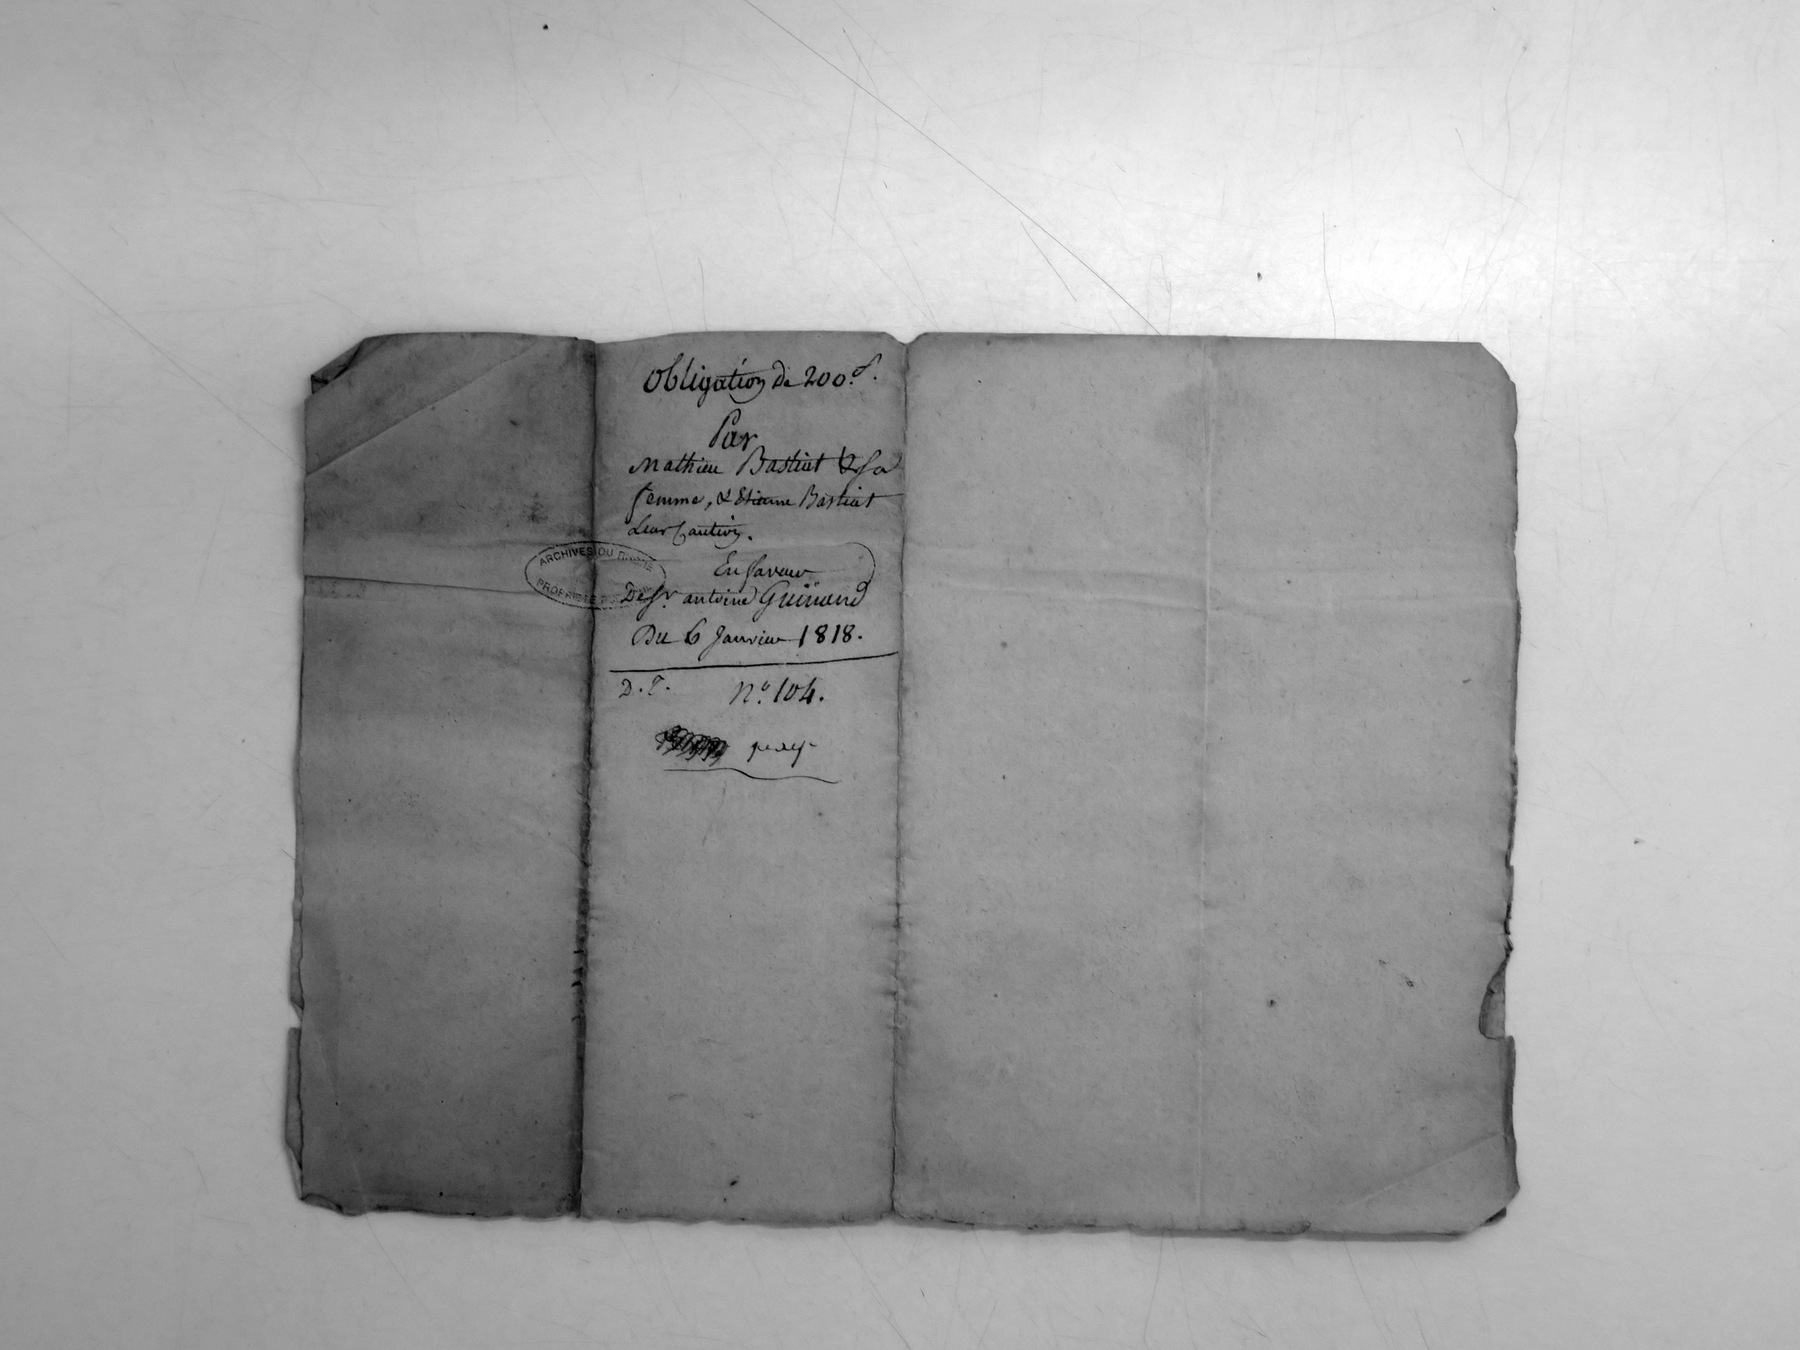 Obligation de 200.f.
Par
Mathieu Bastiat & sa
femme, & Etienne Bastiat
Leur Caution.
En faveur
De Sr. antoine Guinand
Du 6 Janvier 1818.
D. T. N.o 104.
ARCHIVES DU RHONE
PROPRIETE